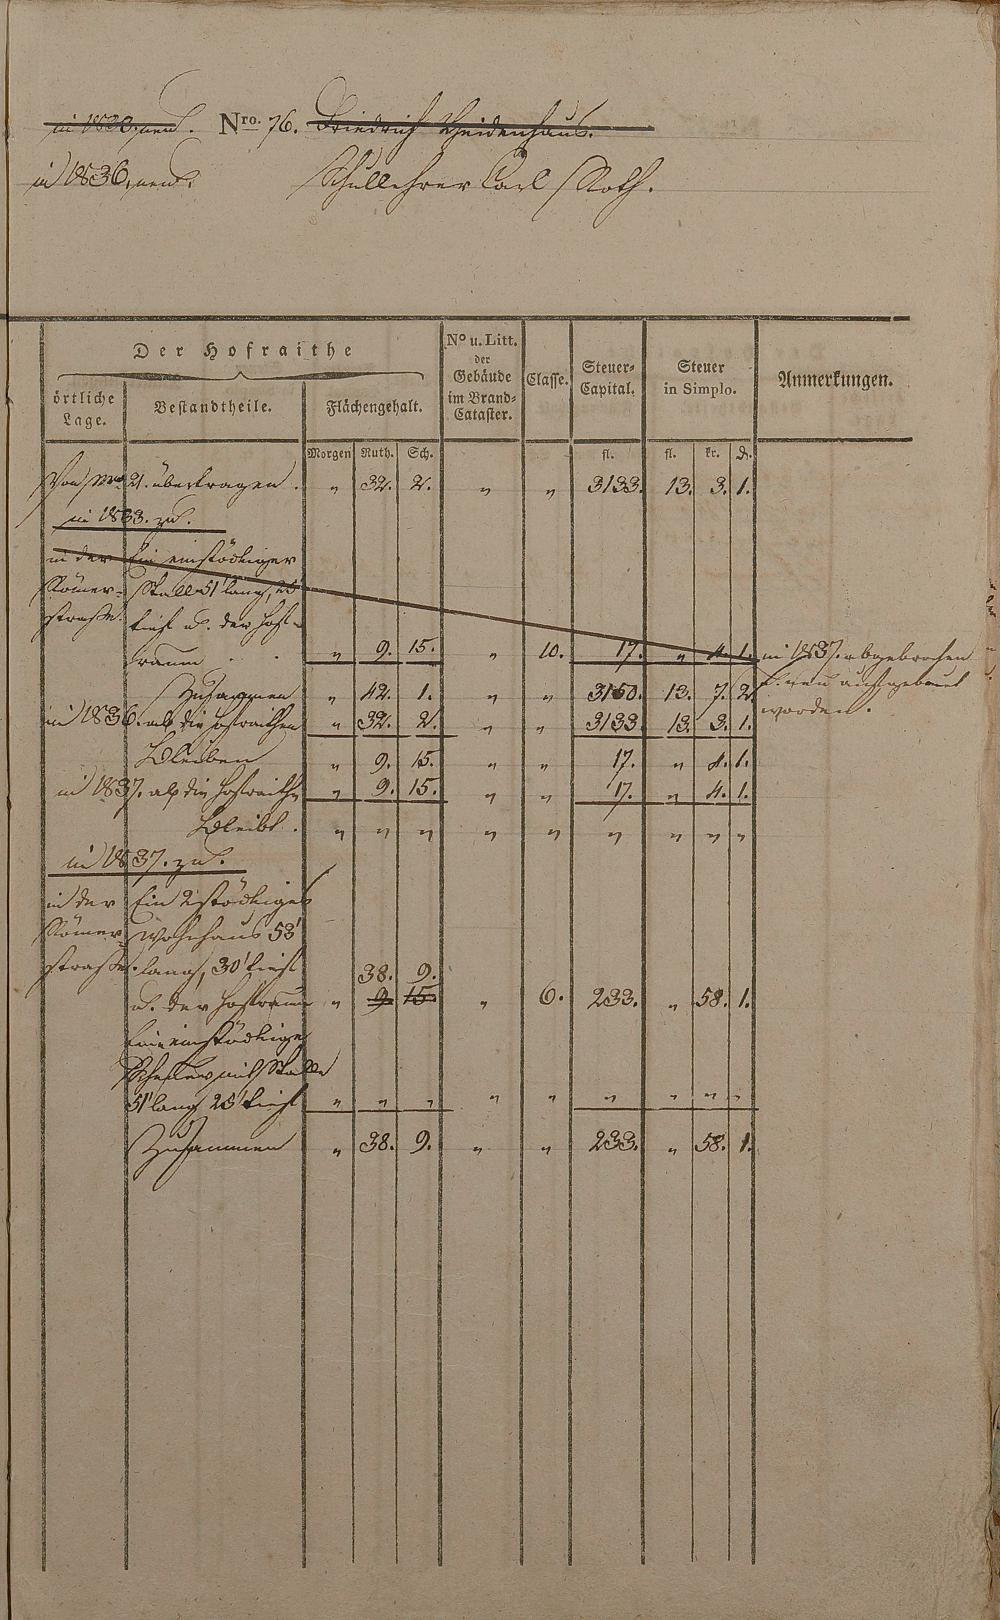 in 1830. neu. Nro. 76. Friedrich Weidenhaus.
in 1836. neu. Schullehrer Carl Roth.
Der Hofraithe
örtliche Lage.
Bestandtheile.
Flächengehalt.
No u. Litt. der Gebäude im Brand-Cataster.
Classe.
Steuer-Capital.
Steuer in Simplo.
Anmerkungen.
Morgen Ruth. Sch. fl. fl. kr. d.
Von Nro 21. übertragen. " 32. 2. " " 3133. 13. 3. 1.
in 1833. zu.
in der Ein einstöckiger
Römer- Stall 51' lang, 25'
straße. tief u. der Hof-
raum . . " 9. 15. " 10. 17. " 4. 1. in 1837. abgebrochen
Zusammen " 42. 1. " " 3150. 13. 7. 2. u. neu aufgebaut
worden.
in 1836. ab die Hofraithe " 32. 2. " " 3133. 13. 3. 1.
Bleiben " 9. 15. " " 17. " 4. 1.
in 1837. ab die Hofraithe " 9. 15. " " 17. " 4. 1.
Bleibt. " " " " " " " " "
in 1837. zu.
in der Ein 2stöckiges
Römer- Wohnhaus 53'
straße. lang, 30' tief 38. 9.
u. der Hofraum " 9. 15. " 6. 233. " 58. 1.
Eine einstöckige
Scheuer mit Stall
51' lang 25' tief " " " " " " " " "
Zusammen " 38. 9. " " 233. " 58. 1.